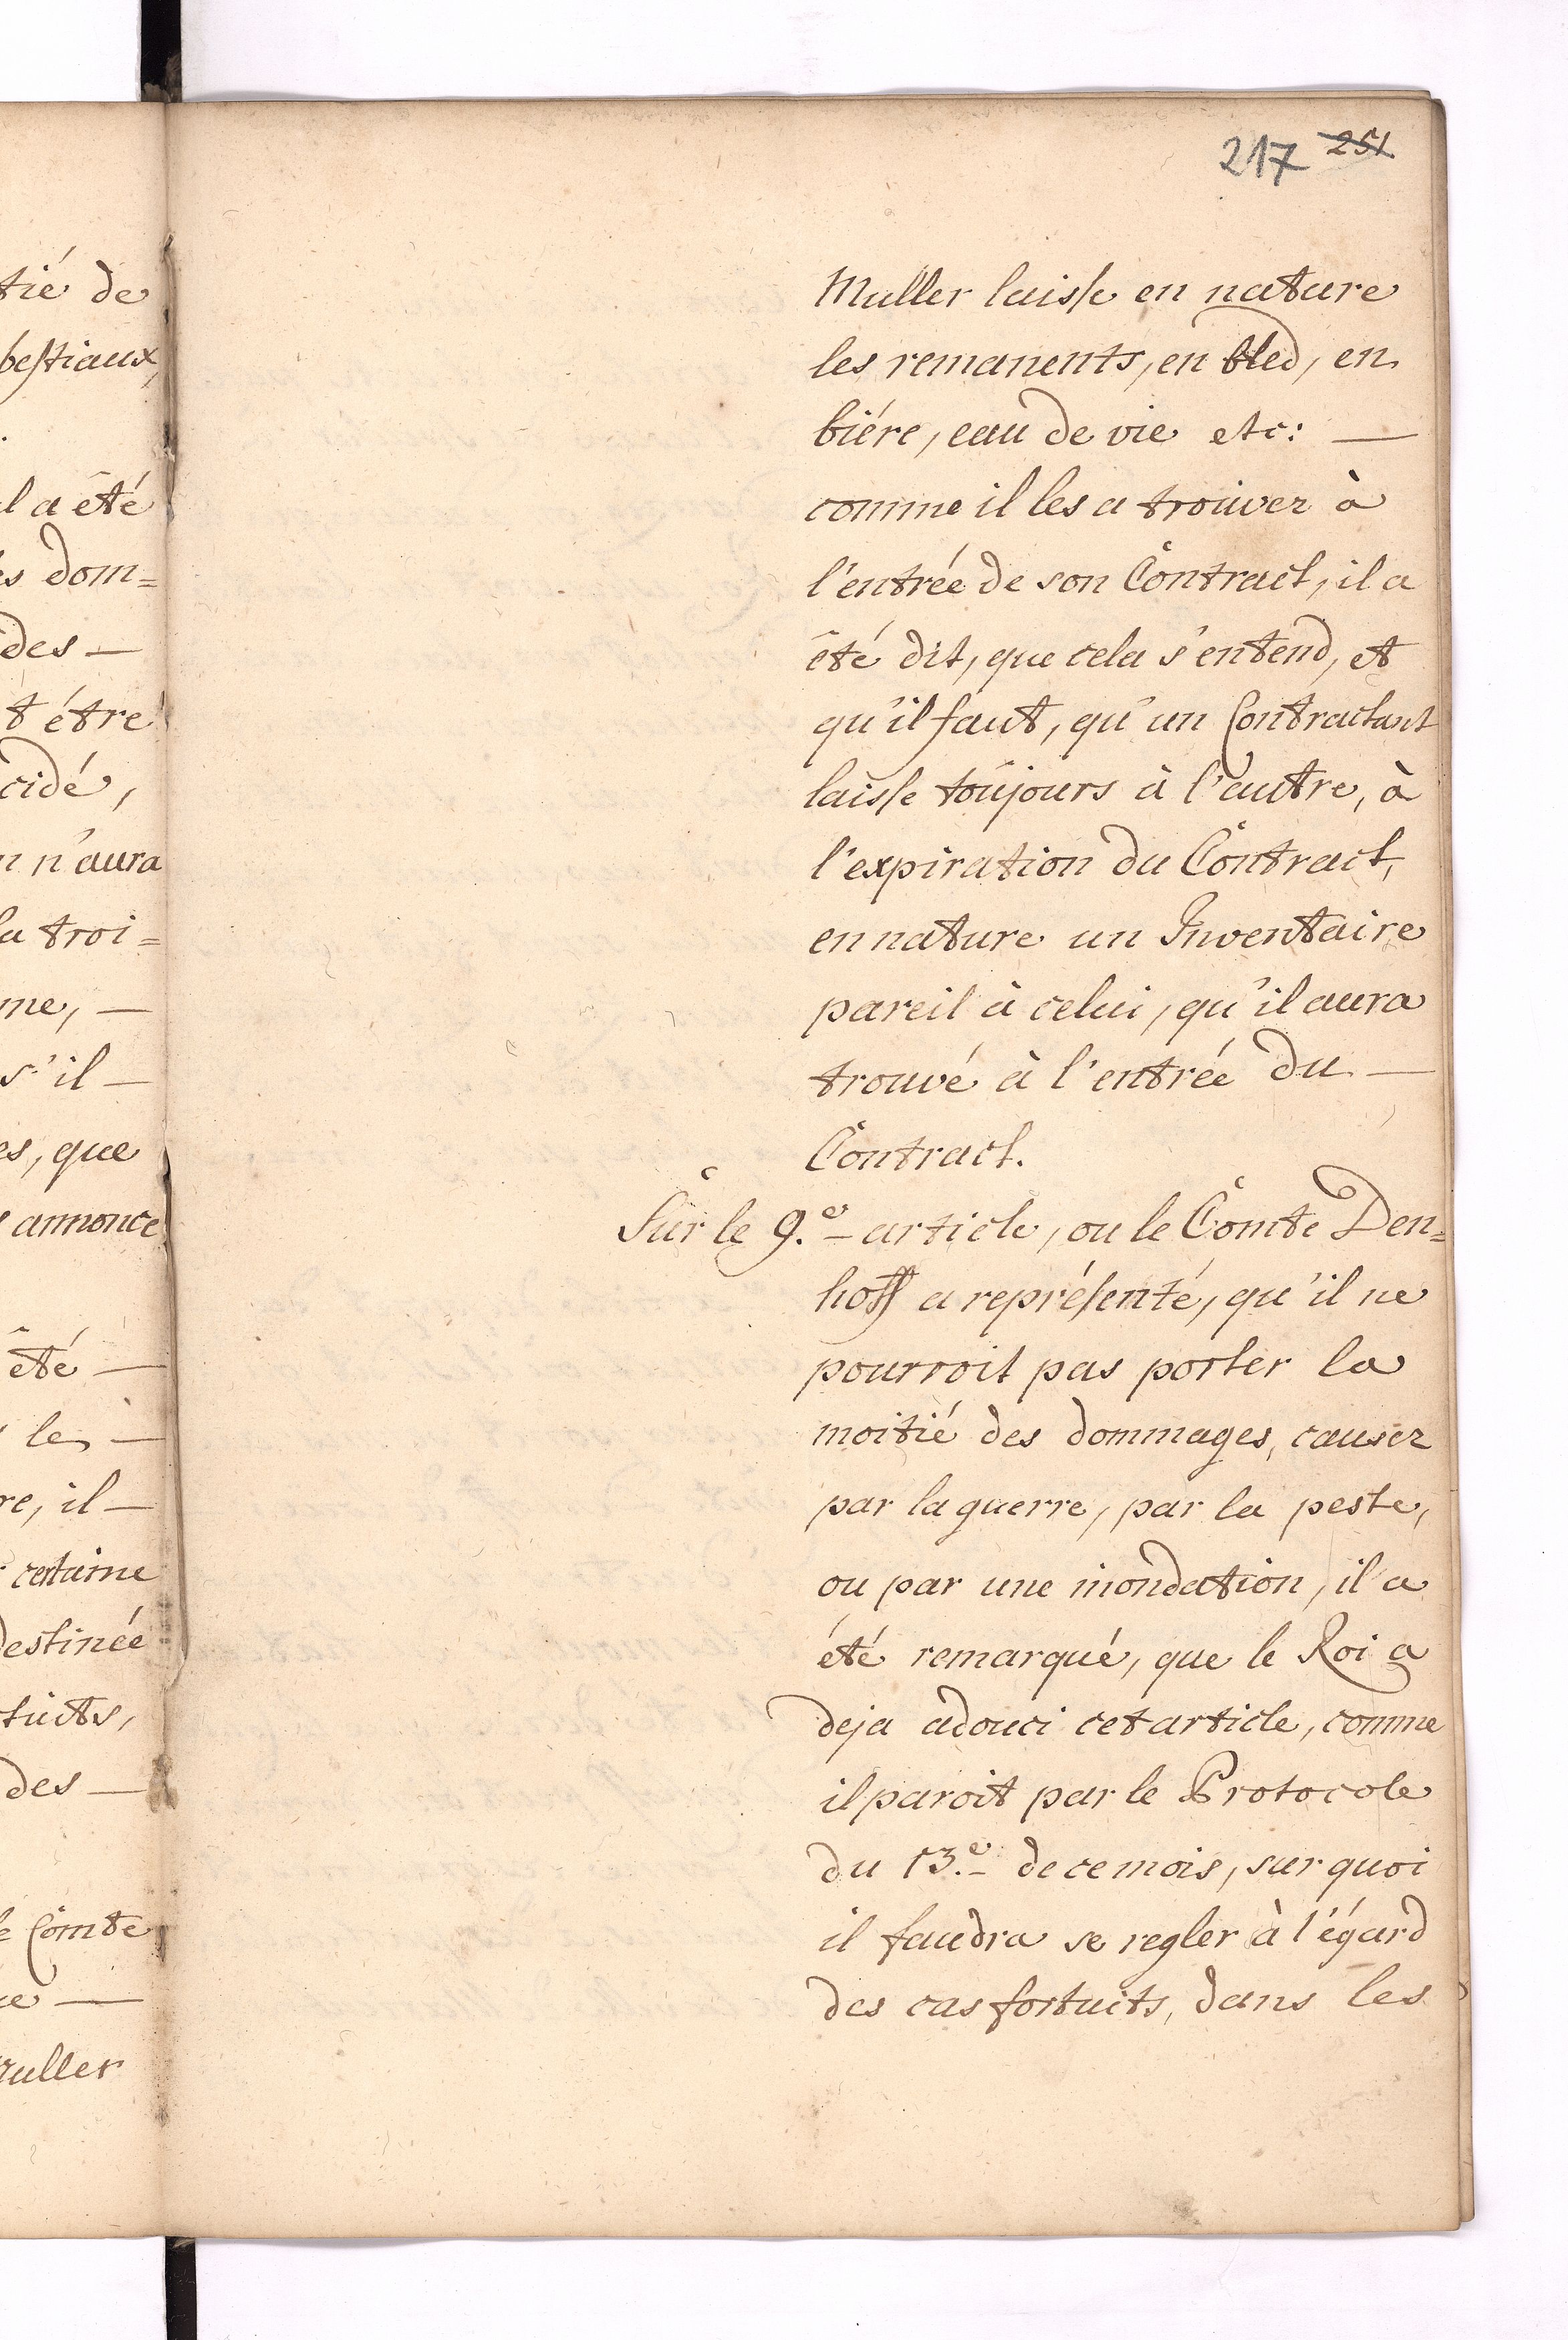 217 251
Muller laisse en nature
les remanents, en bled, en
biére, eau de vie etc: —
comme il les a trouver à
l'entrée de son Contract, il a
été dit, que cela s'entend, et
qu'il faut, qu'un Contractant
laisse toujours à l'autre, à
l'expiration du Contract,
en nature un Inventaire
pareil à celui, qu'il aura
trouvé à l'entrée du —
Contract.
Sur le 9.e article, ou le Comte Den=
hoff a représenté, qu'il ne
pourroit pas porter la
moitié des dommages, causer
par la guerre, par la peste,
ou par une inondation, il a
été remarqué, que le Roi a
deja adouci cet article, comme
il paroit par le Protocole
du 13.e de ce mois, sur quoi
il faudra se regler à l'égard
des cas fortuits, dans les
tié de
bestiaux,
l a été
es dom=
des —
t étre
cidé,
n n'aura
la troi=
me, —
s'il —
es, que
annonce
été —
le, —
re, il —
certaine
destinée
tuits,
des —
le Comte
ue —
ruller